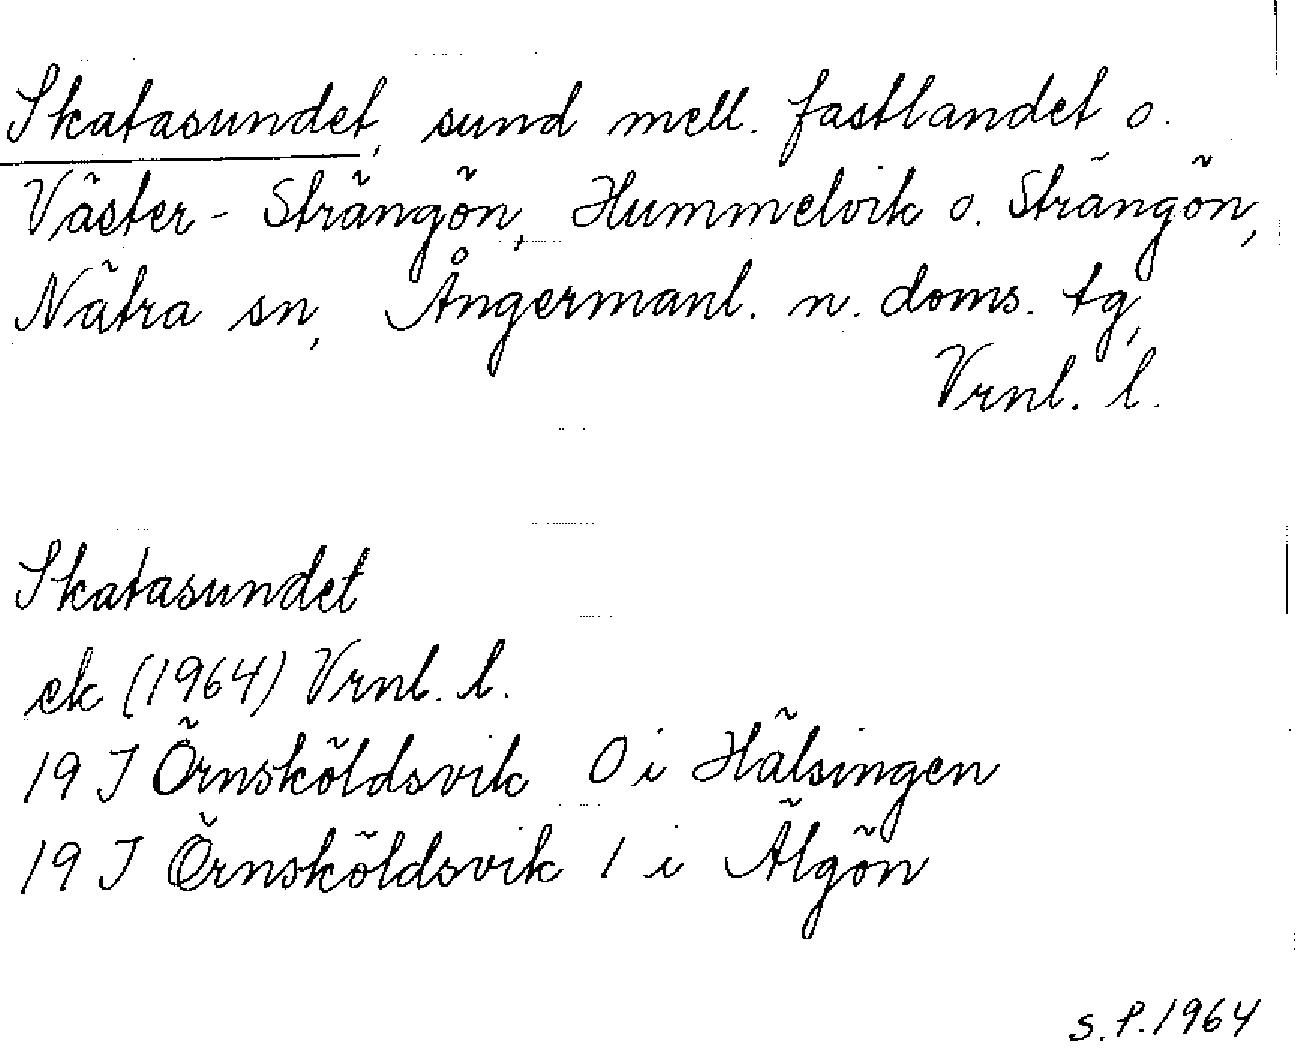 Skatasundet, sund mell. fastlandet o.
Väster-Strängön, Hummelvik o. Strängön,
Nätra sn, Ångermanl. n. doms. tg,
Vrnl. l.
Skatasundet
ek (1964) Vrnl. l.
19 J Örnsköldsvik 0 i Hälsingen
19 J Örnsköldsvik 1 i Älgön
S.P. 1964